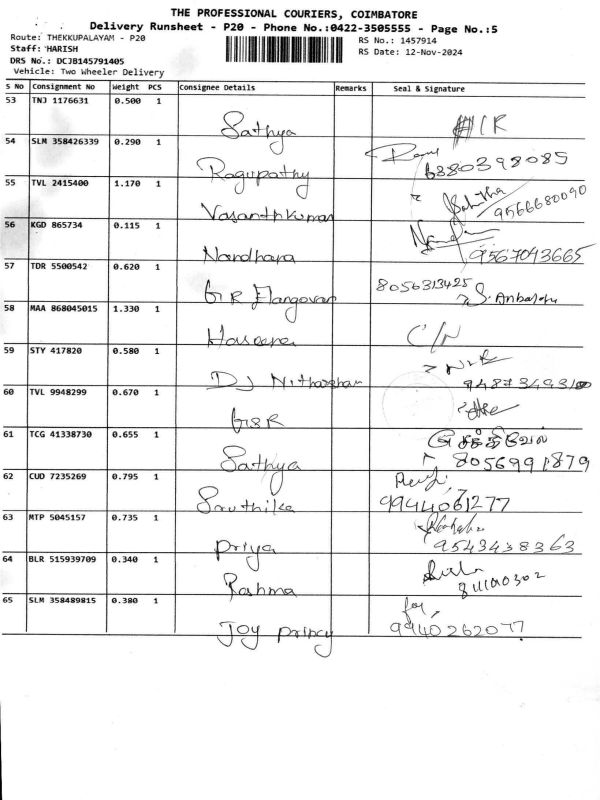 THE PROFESSIONAL COURIERS, COIMBATORE
Delivery Runsheet - P20 - Phone No.:0422-3505555 - Page No.:5
Route: THEKKUPALAYAM - P20
RS No.: 1457914
Staff: HARISH
RS Date: 12-Nov-2024
DRS No.: DCJB145791405
Vehicle: Two Wheeler Delivery
S No Consignment No Weight PCS Consignee Details Remarks Seal & Signature
53 TNJ 1176631 0.500 1
Sathya
54 SLM 358426339 0.290 1
Ragupathy 6880398085
55 TVL 2415400 1.170 1
Vasanthkumar 9566680090
56 KGD 865734 0.115 1
Nandhana 9567043665
57 TDR 5500542 0.620 1 8056313425
GR Elangovan S.
58 MAA 868045015 1.330 1
Haseena C/N
59 STY 417820 0.580 1
DJ 9487349310
60 TVL 9948299 0.670 1
G8R
61 TCG 41338730 0.655 1 செந்திவேல்
Sathya 8056991879
62 CUD 7235269 0.795 1
Sruthika 9944061277
63 MTP 5045157 0.735 1
Priya 9543438363
64 BLR 515939709 0.340 1
Rashma
65 SLM 358489815 0.380 1 Joy
Joy princy 9940262077